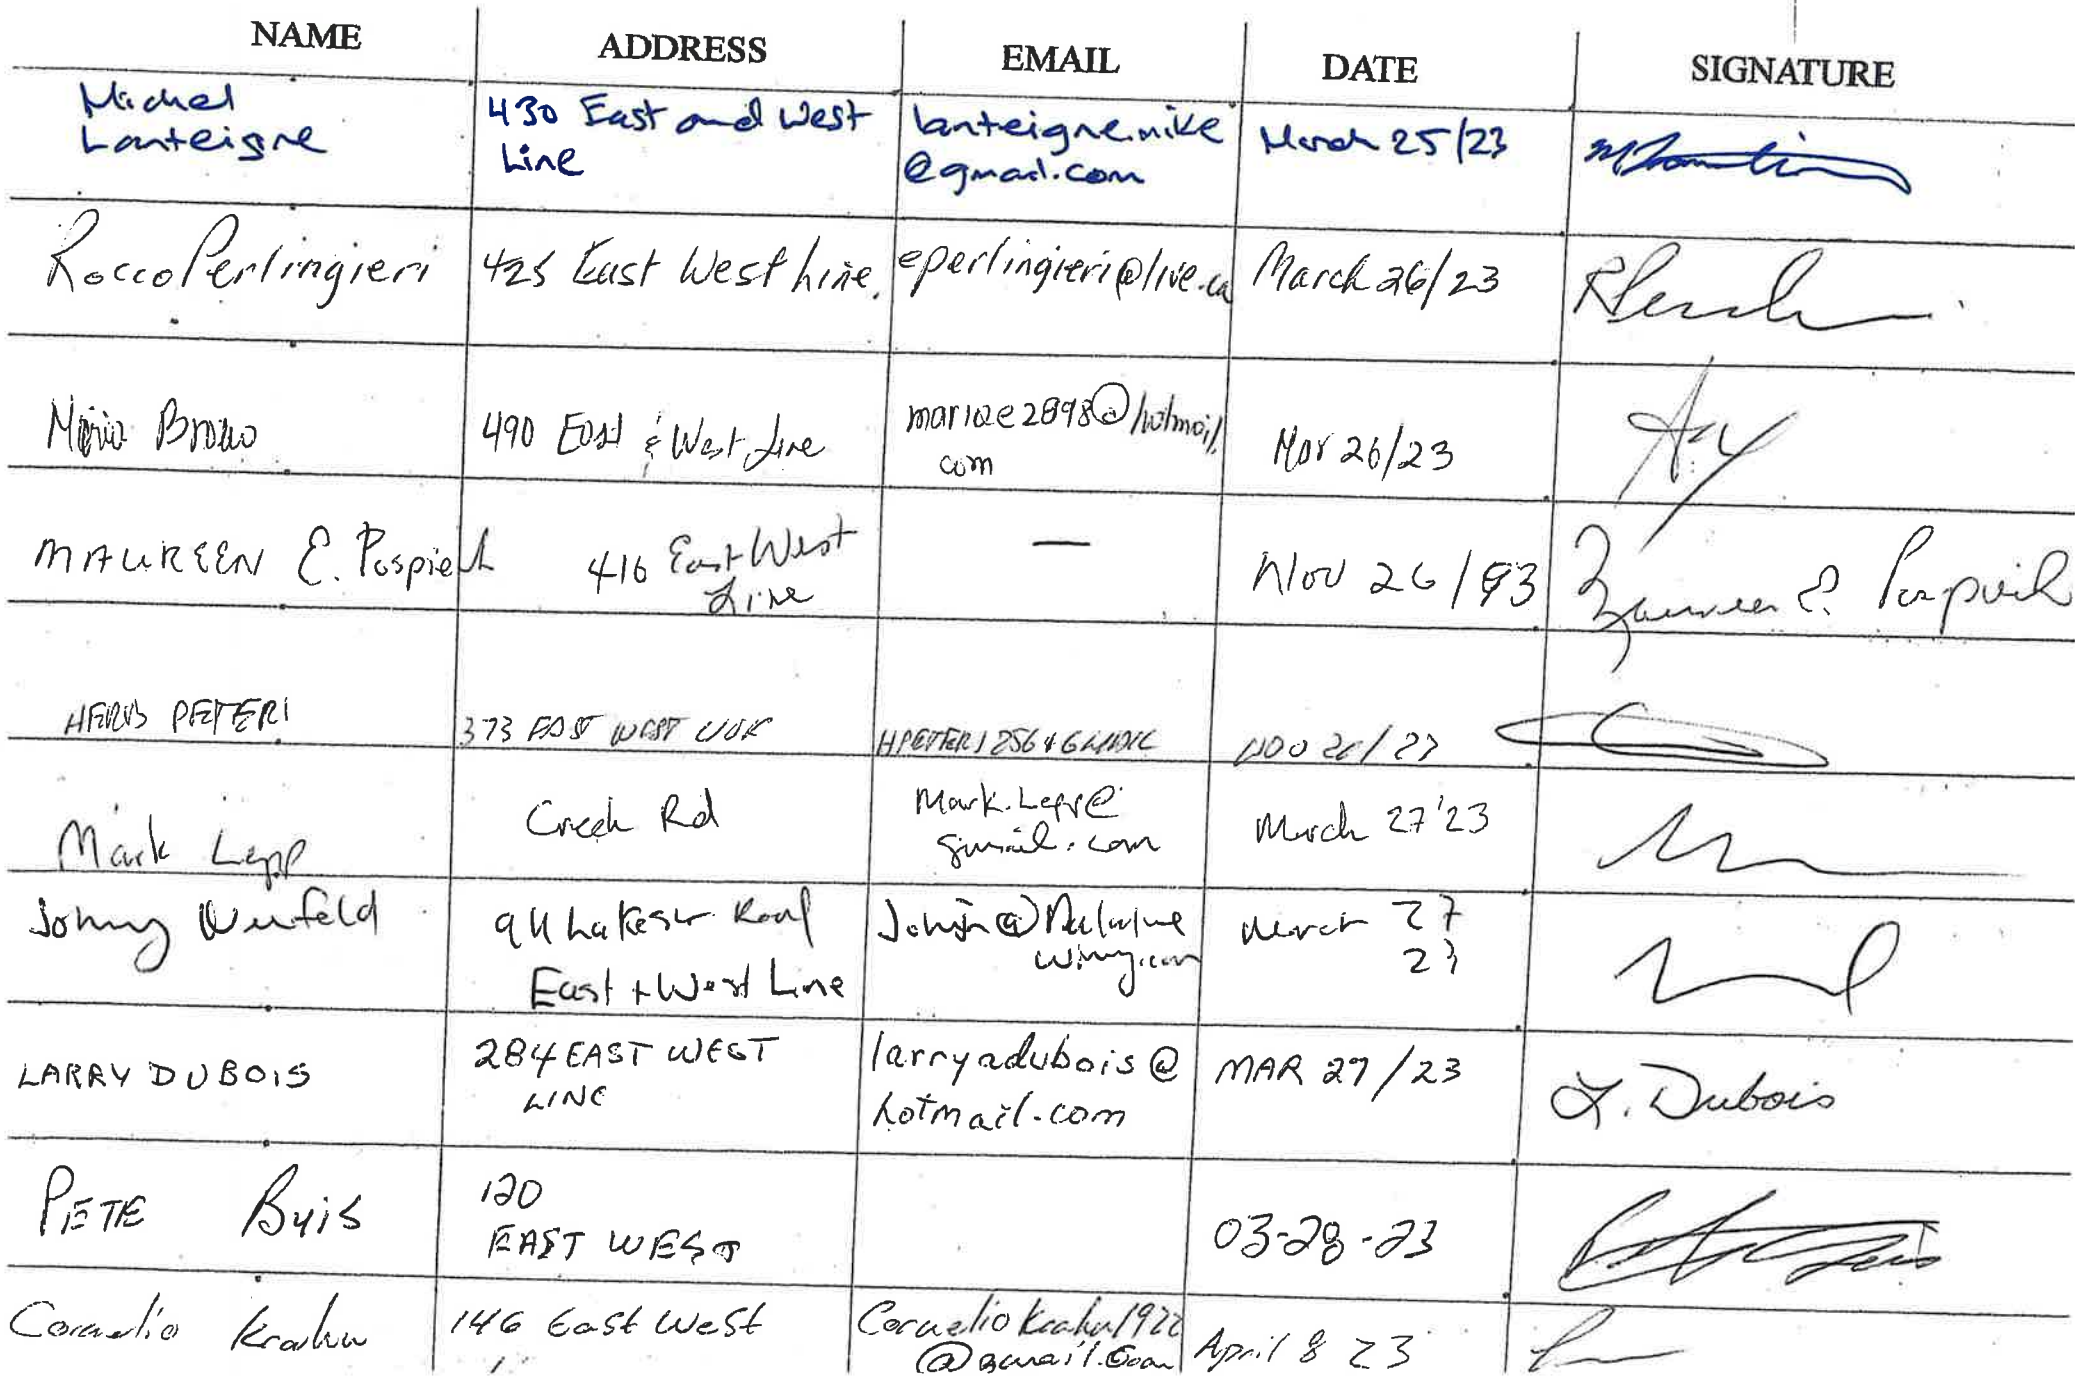 NAME ADDRESS EMAIL DATE SIGNATURE
Michel
Lanteigne
430 East and West
Line
lanteigne.mike
@gmail.com
March 25/23
Rocco Perlingieri
425 East West Line.
eperlingieri@live.ca
March 26/23
Bruno
490 East & West Line
@hotmail.
com
Mar 26/23
MAUREEN E. Pospiech
416 East West
Line
—
Nov 26/93
E. Pospiech
HERB PETERI
373 EAST WEST
Mark Lepp
Creek Rd
Mark.Lepp@
gmail.com
March 27'23
Johny Neufeld
Road
East + West Line
March 27
23
LARRY DUBOIS
284 EAST WEST
LINE
larryadubois@
hotmail.com
MAR 27/23
L. Dubois
PETE Buis
120
EAST WEST
03-28-23
Cornelio Krahn
146 East West
Cornelio Krahn1922
@gmail.com
April 8 23